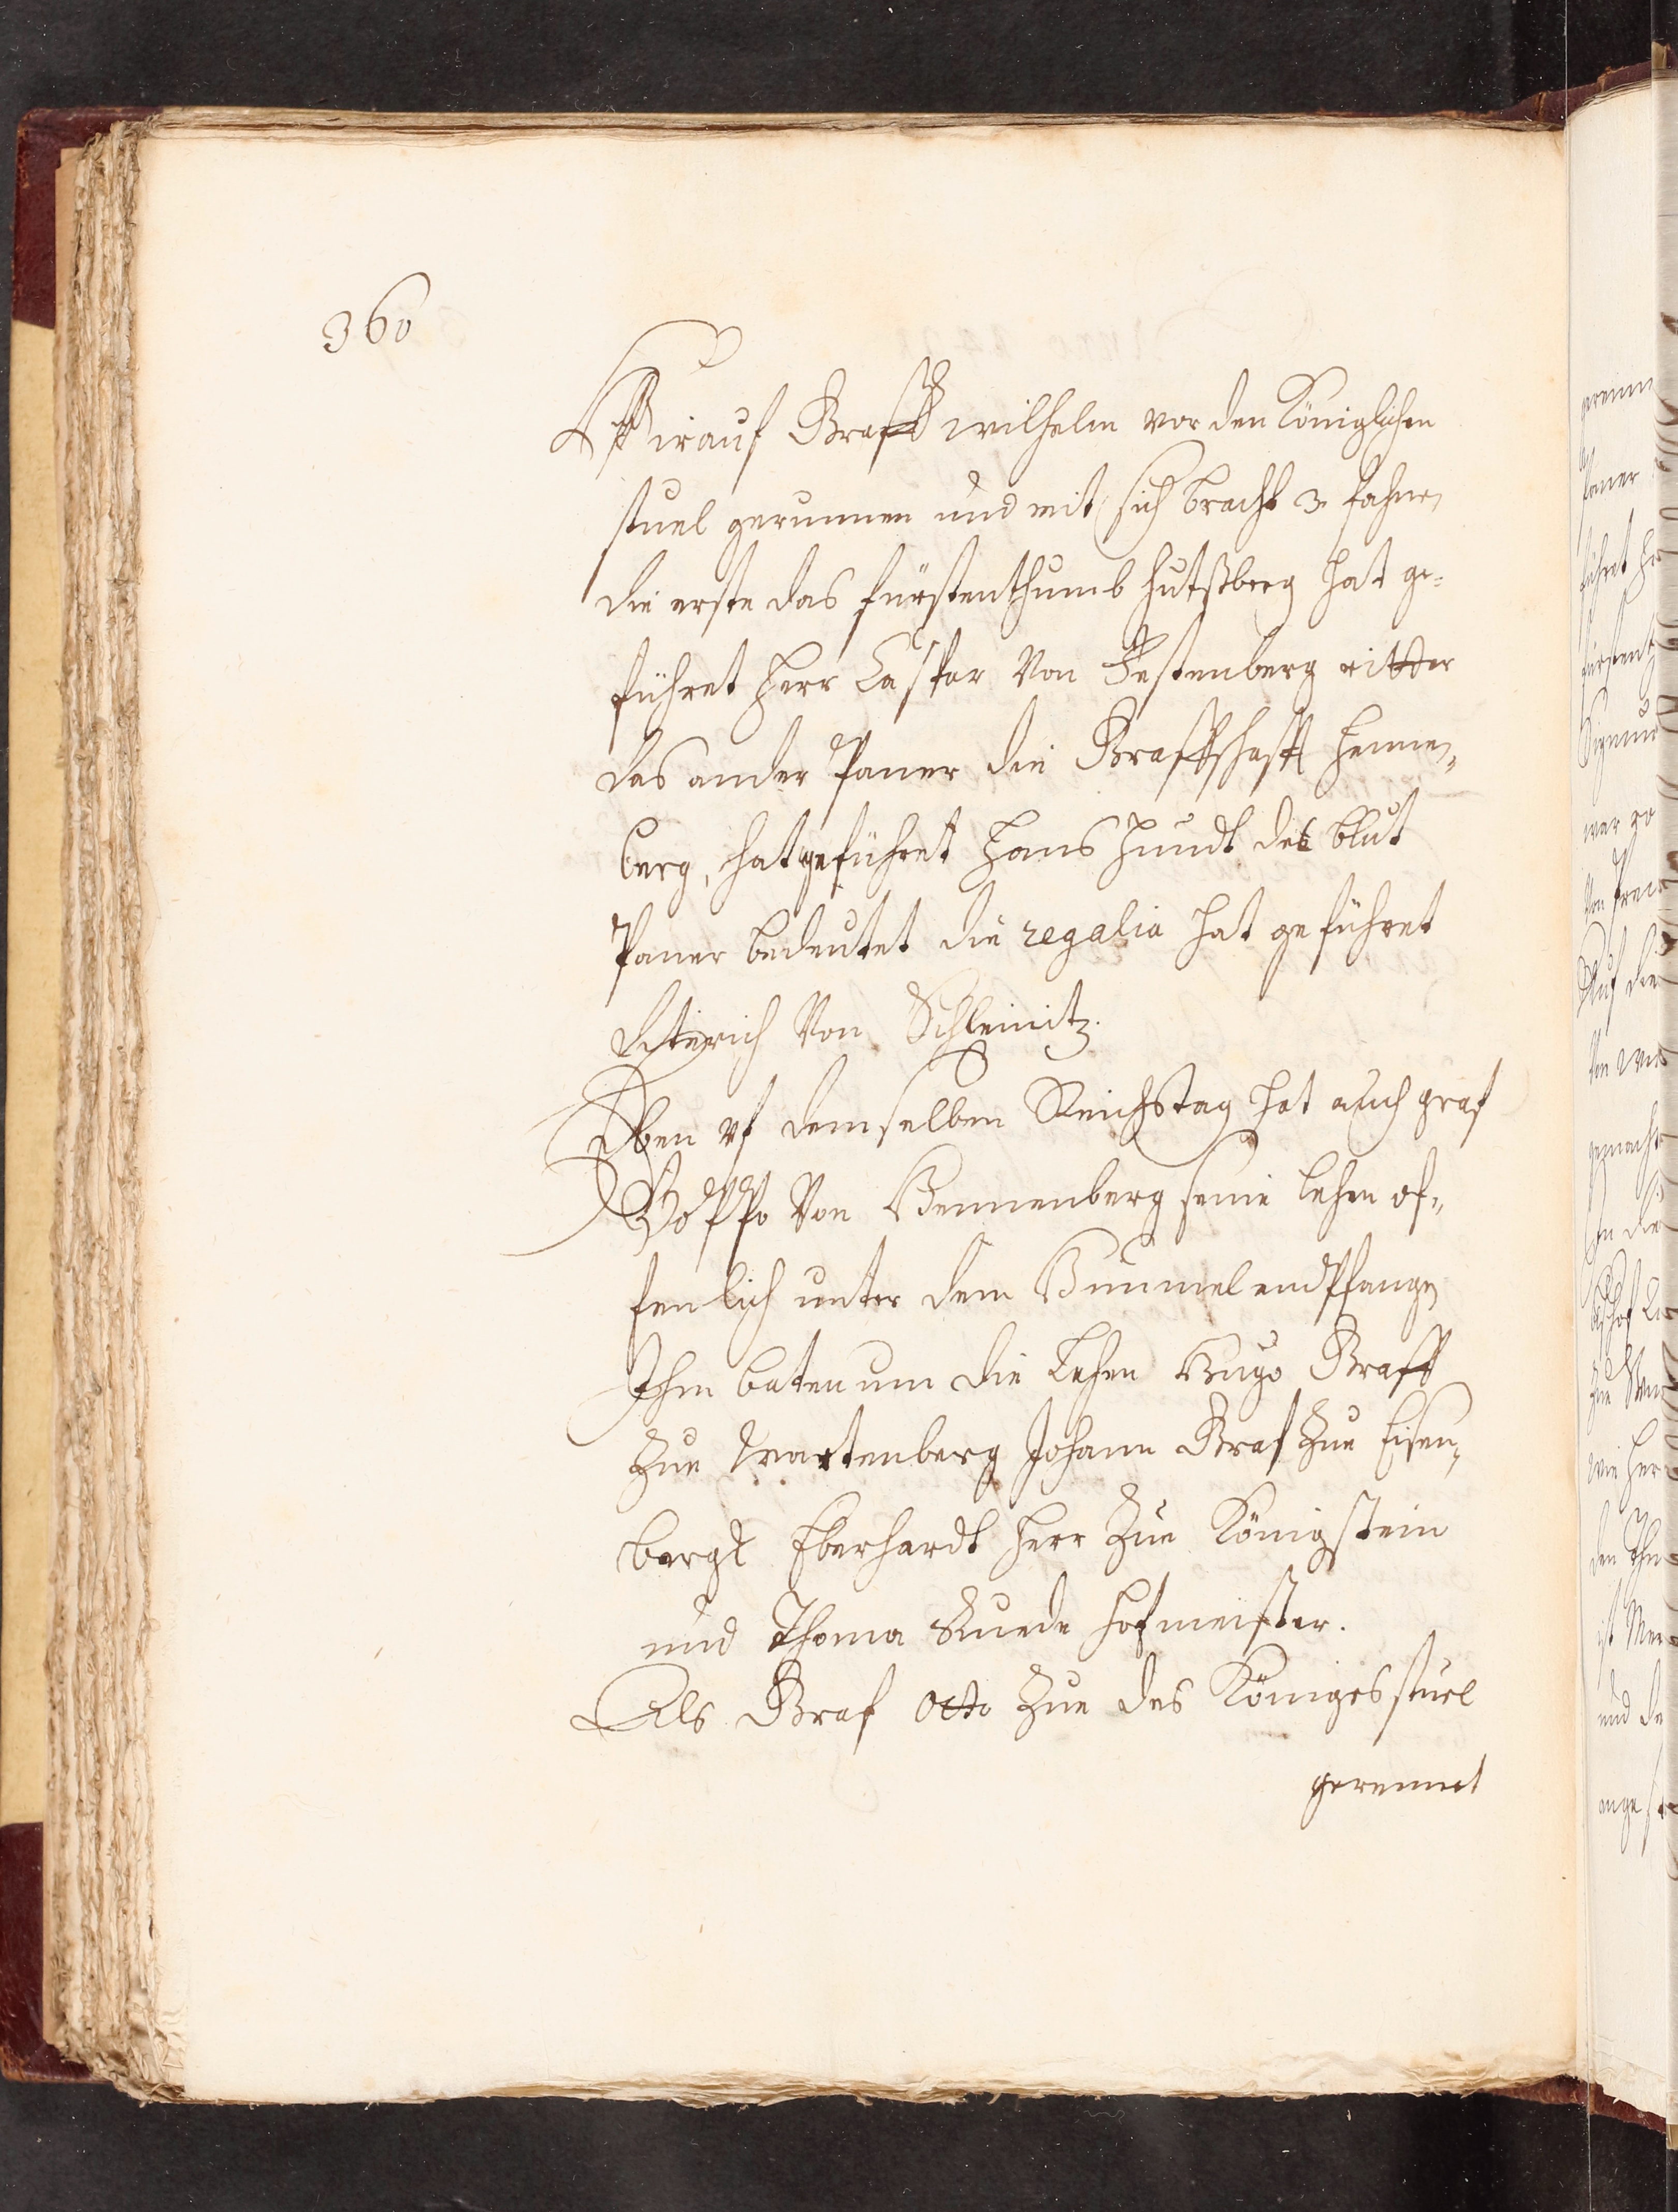 360
Hirauf Graff Wilhelm vor den Königlichen
stuel gerunnen und mit sich bracht 3. fahnen
die erste das fürstenthumb hutßberg hat ge-
führet herr Caspar Von Festenberg ritter
das ander Paner die Graffschafft Henne-
berg, hat geführet Hans Hundt das blut
Paner bedeutet die regalia hat geführet
Diterich Von Schleinitz.
Eben uf demselben Reichstag hat auch graf
Poppo Von Hennenberg seine lehen of-
fenlich unter dem Himmel endpfangen
Ihm baten um die Lehen Hugo Graff
Zue Wartenberg Johann Graf Zue Eisen-
bergk Eberhardt herr Zue Königstein
und Thoma Ruede hofmeister.
Als Graf Otto Zue des Königes stuel
gerennet